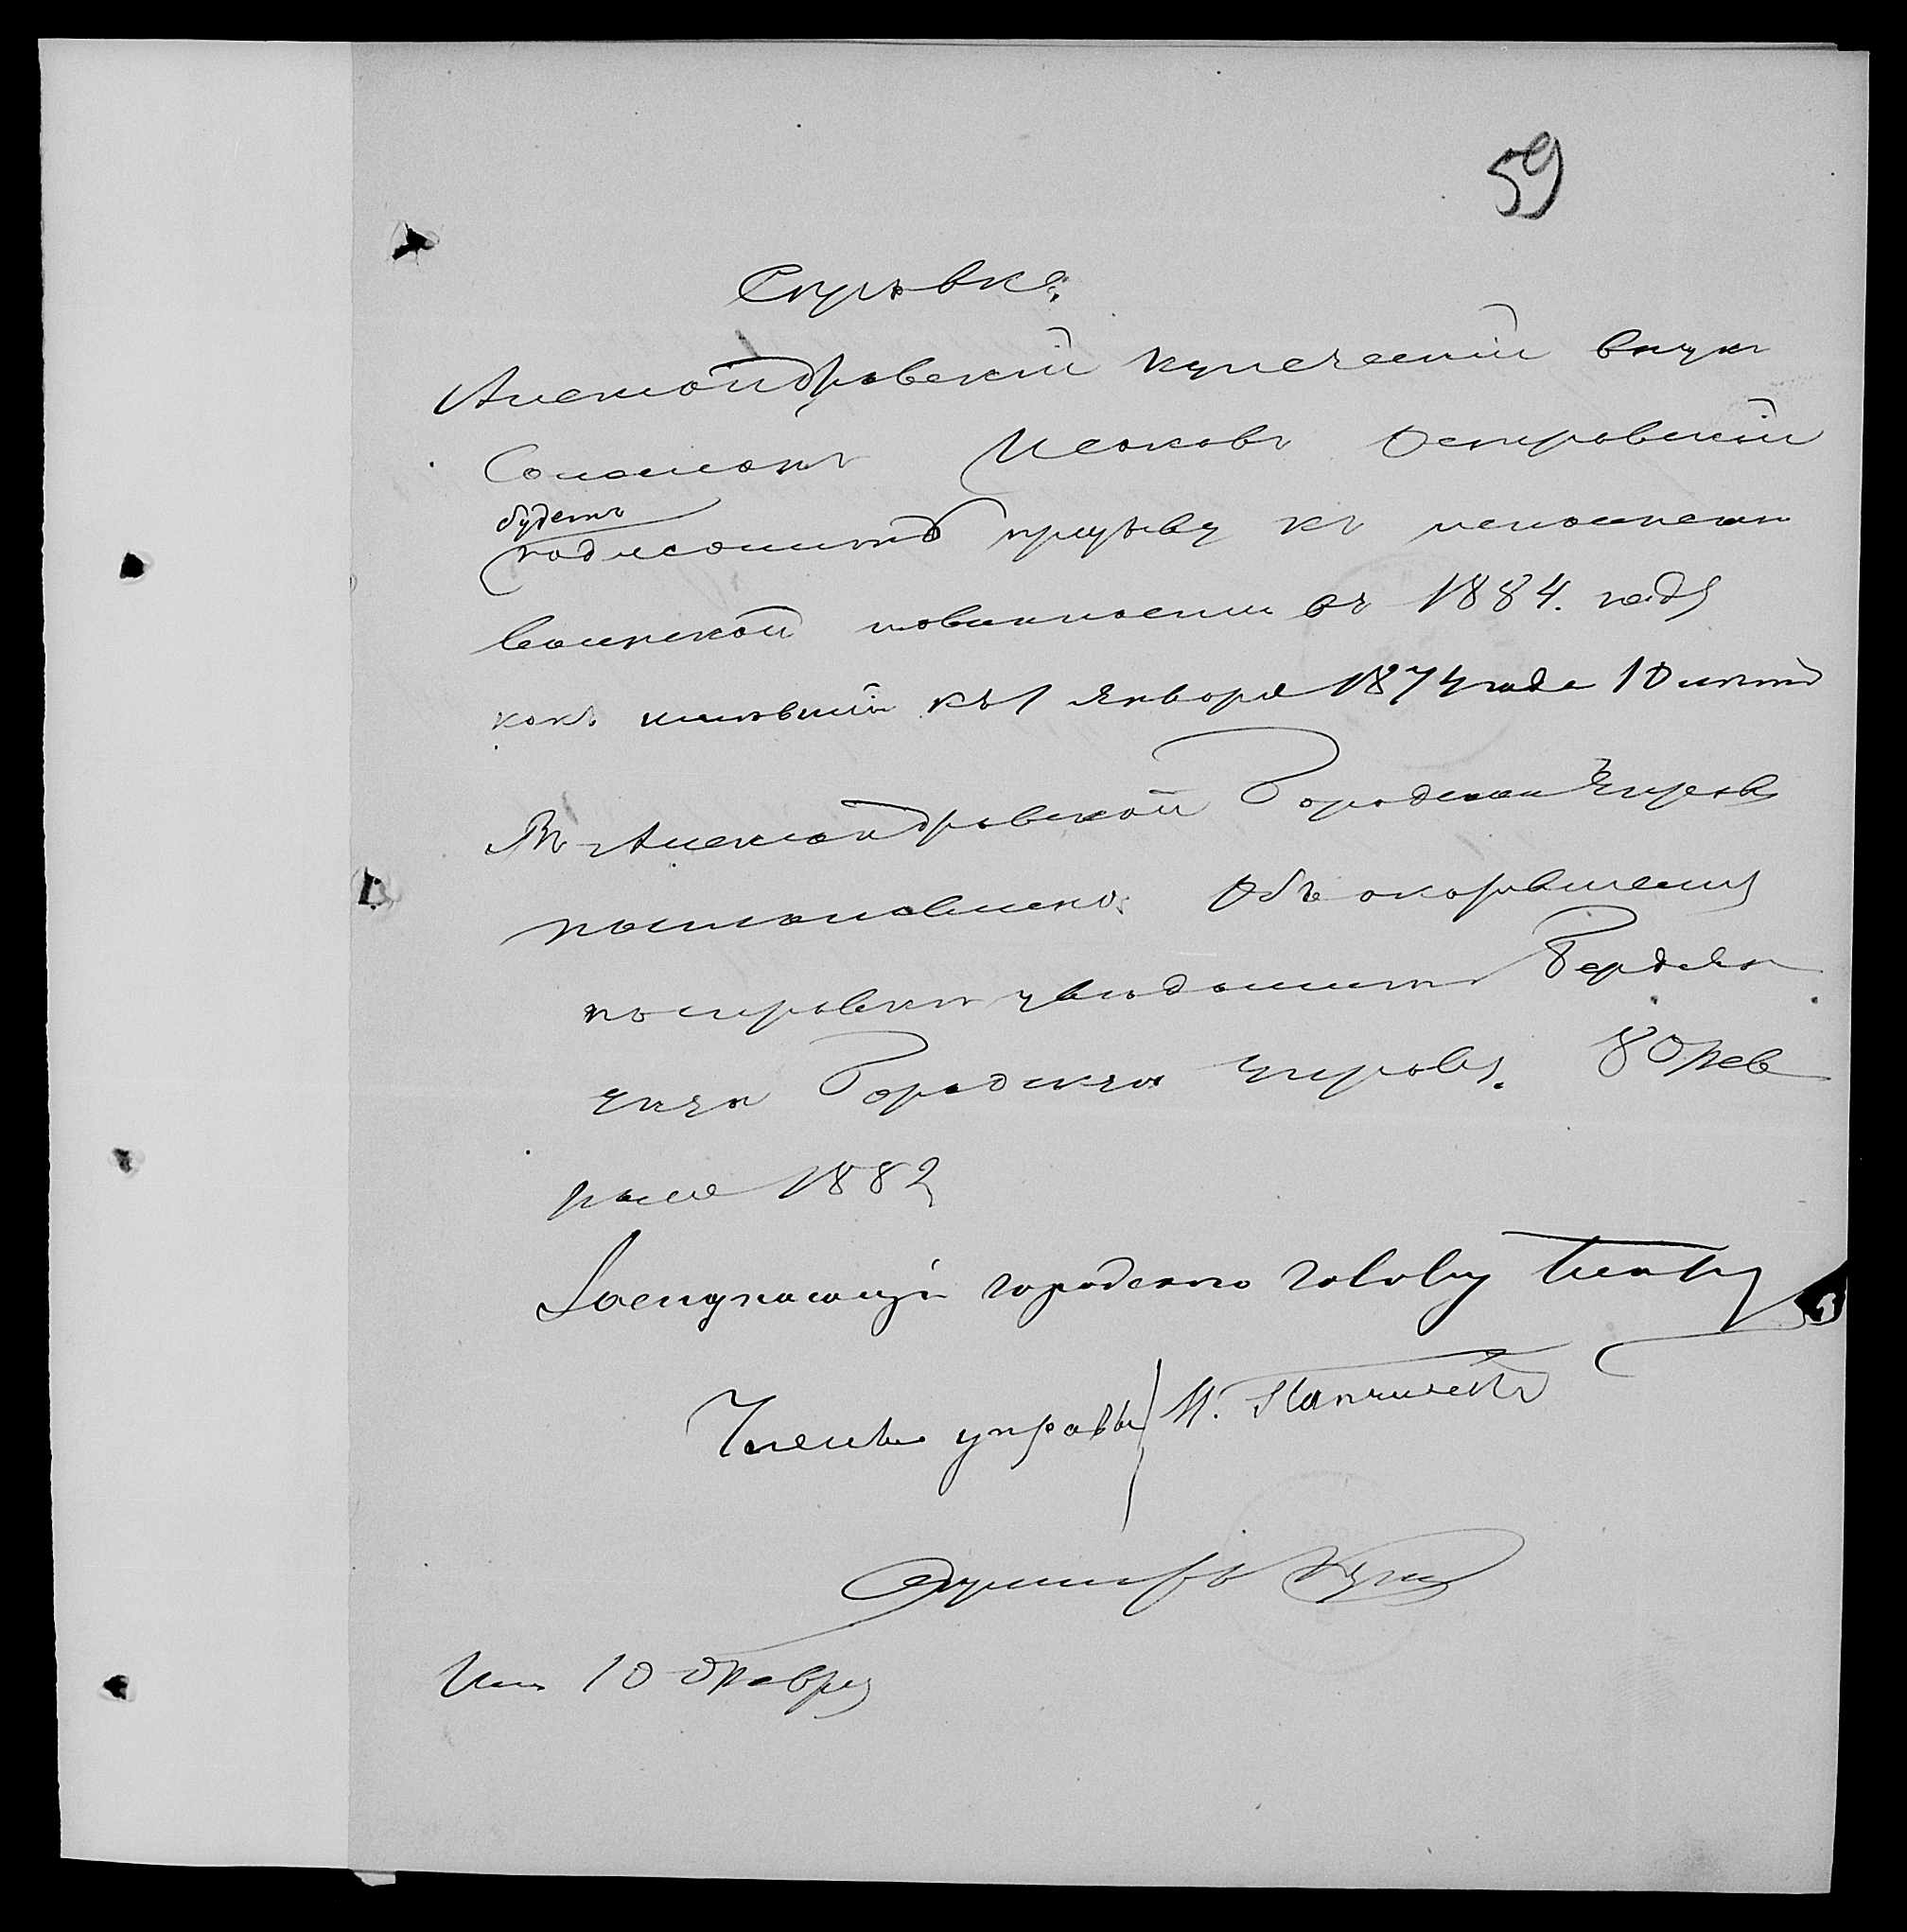 59
Справка
Александровскій купеческій внукъ
Соломонъ Исаковъ Островскій
будетъ
подлежитъ призыву къ исполненію
воинской повинности въ 1884. году
какъ имѣвшій къ 1 января 1874 года 10 лѣтъ
Въ Александровской Городской Управѣ
постановлено: Объ оказавшемся
по справкѣ увѣдомить Бердян
скую Городскую Управу. 8 Фев
раля 1882
Заступающій городского голову
Члены управы М.
10 Февраля